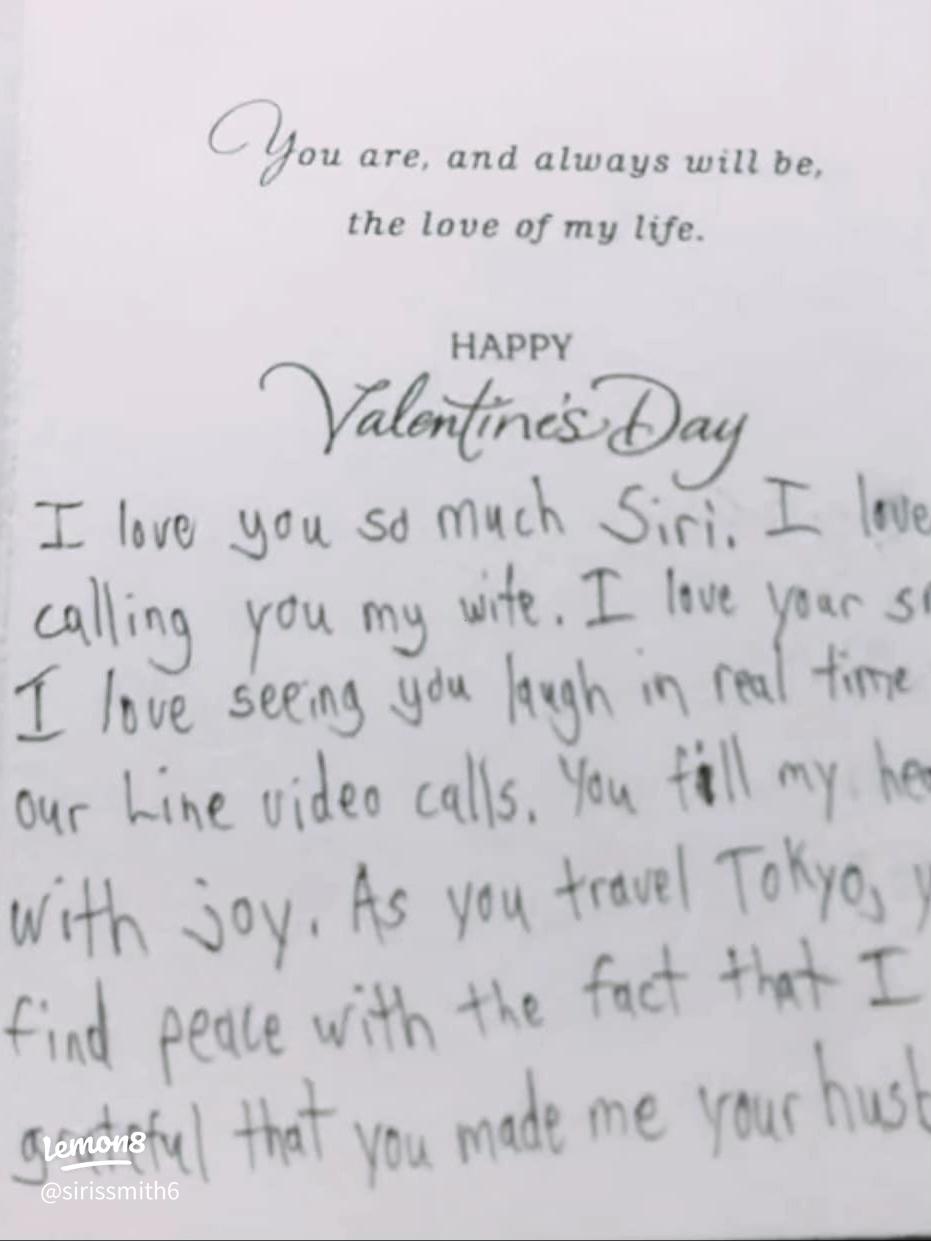 You are, and always will be,
the love of my life.
HAPPY
Valentine's Day
I love you so much Siri. I love
calling you my wife. I love your
I love seeing you laugh in real time
our Line video calls. You fill my
with joy. As you travel Tokyo,
find peace with the fact that I
grateful that you made me your
Lemon8
@sirissmith6